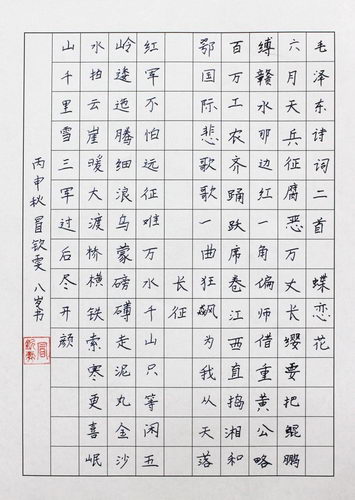 毛泽东诗词二首 蝶恋花
六月天兵征腐恶万丈长缨要把鲲鹏
缚赣水那边红一角偏师借重黄公略
百万工农齐踊跃席卷江西直捣湘和
鄂国际悲歌歌一曲狂飙为我从天落
长征
红军不怕远征难万水千山只等闲五
岭逶迤腾细浪乌蒙磅礴走泥丸金沙
水拍云崖暖大渡桥横铁索寒更喜岷
山千里雪三军过后尽开颜
丙申秋 冒钦雯 八岁书